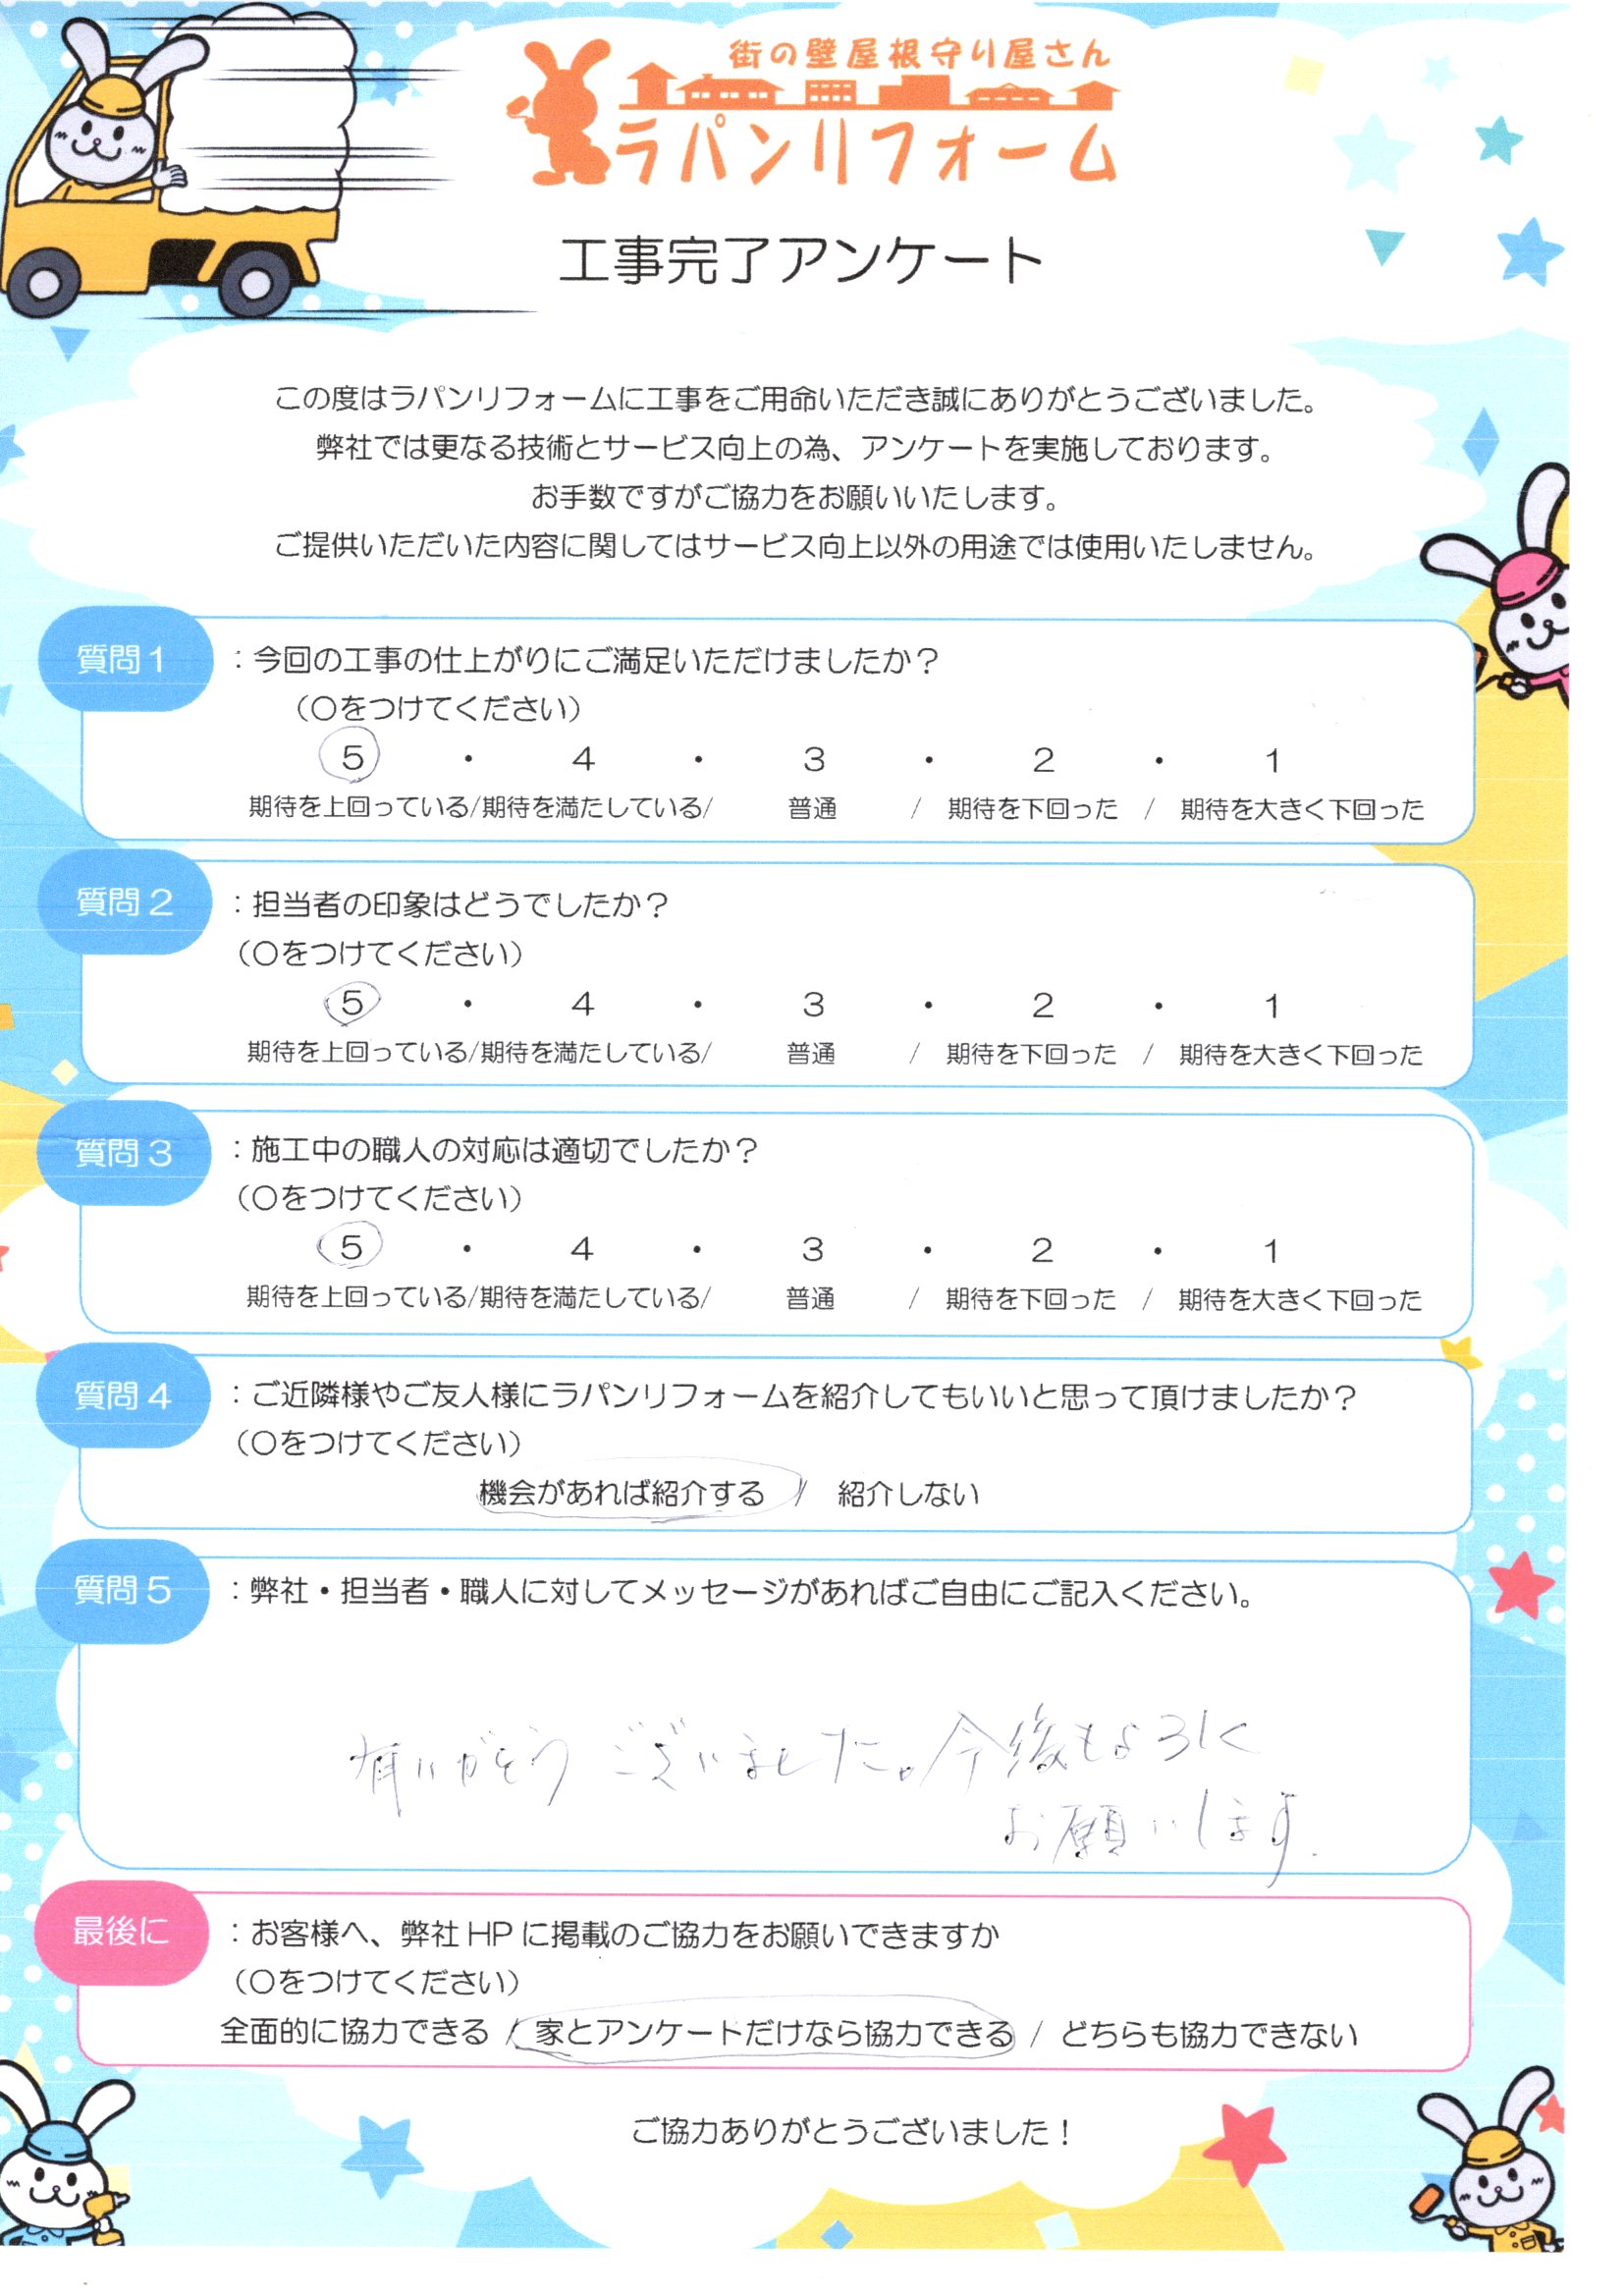 街の壁屋根守り屋さん
ラパンリフォーム
工事完了アンケート
この度はラパンリフォームに工事をご用命いただき誠にありがとうございました。
弊社では更なる技術とサービス向上の為、アンケートを実施しております。
お手数ですがご協力をお願いいたします。
ご提供いただいた内容に関してはサービス向上以外の用途では使用いたしません。
質問1 ：今回の工事の仕上がりにご満足いただけましたか？
（○をつけてください）
5 ・ 4 ・ 3 ・ 2 ・ 1
期待を上回っている/期待を満たしている/ 普通 / 期待を下回った / 期待を大きく下回った
質問2 ：担当者の印象はどうでしたか？
（○をつけてください）
5 ・ 4 ・ 3 ・ 2 ・ 1
期待を上回っている/期待を満たしている/ 普通 / 期待を下回った / 期待を大きく下回った
質問3 ：施工中の職人の対応は適切でしたか？
（○をつけてください）
5 ・ 4 ・ 3 ・ 2 ・ 1
期待を上回っている/期待を満たしている/ 普通 / 期待を下回った / 期待を大きく下回った
質問4 ：ご近隣様やご友人様にラパンリフォームを紹介してもいいと思って頂けましたか？
（○をつけてください）
機会があれば紹介する / 紹介しない
質問5 ：弊社・担当者・職人に対してメッセージがあればご自由にご記入ください。
有りがとうございました。今後もよろしく
お願いします.
最後に ：お客様へ、弊社HPに掲載のご協力をお願いできますか
（○をつけてください）
全面的に協力できる / 家とアンケートだけなら協力できる / どちらも協力できない
ご協力ありがとうございました！